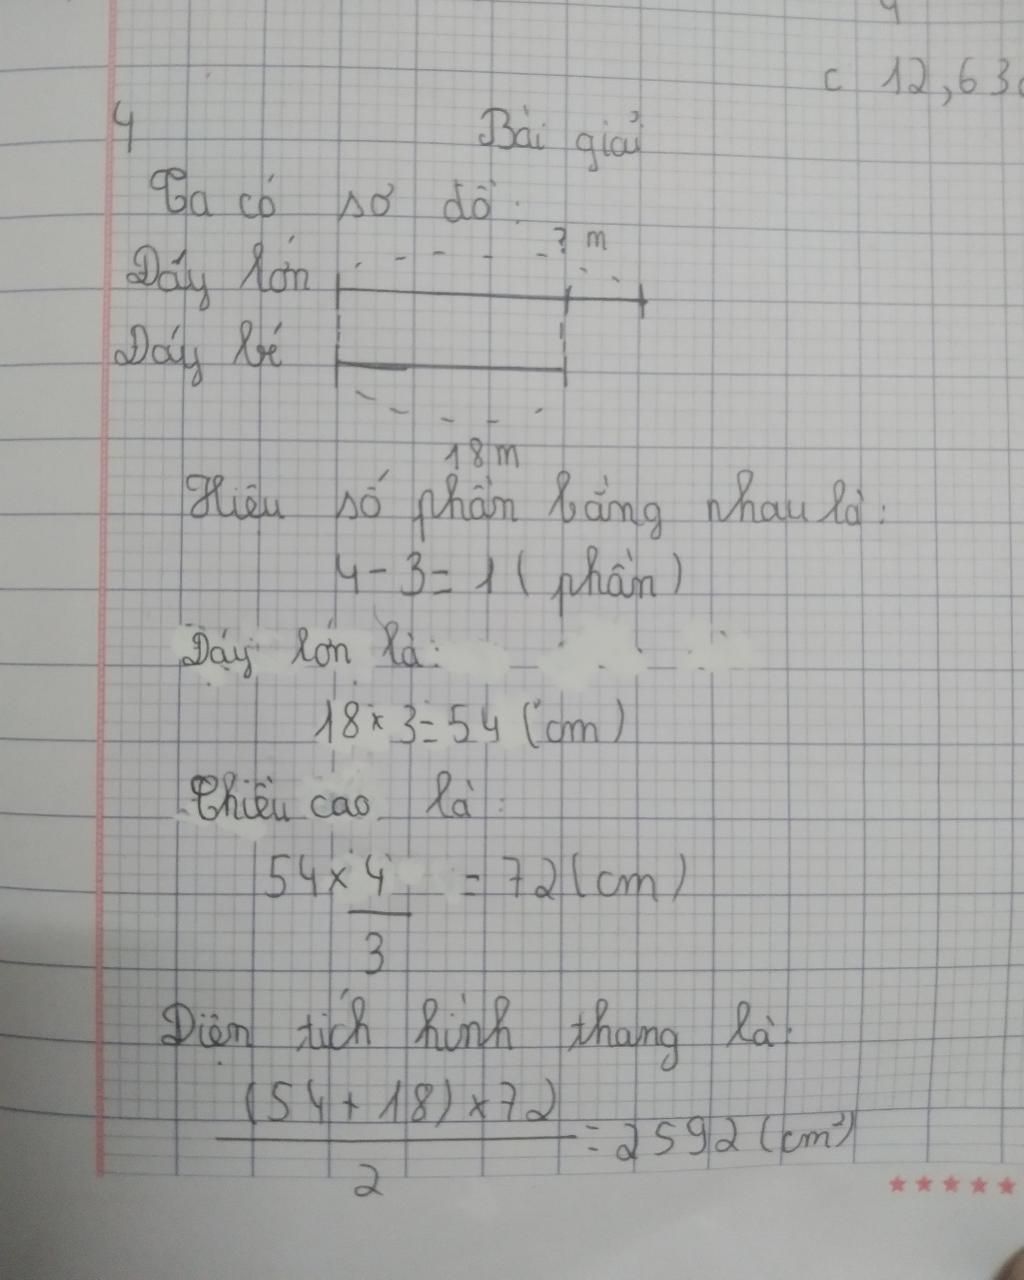 c 12,63
4
Bài giải
Ta có sơ đồ:
? m
Đáy lớn
Đáy bé
18m
Hiệu số phần bằng nhau là:
4 - 3 = 1 ( phần )
Đáy lớn là:
18 × 3 = 54 (cm)
Chiều cao là:
54 × 4/3 = 72 (cm)
Diện tích hình thang là:
(54 + 18) × 72
/ 2 = 2592 (cm²)